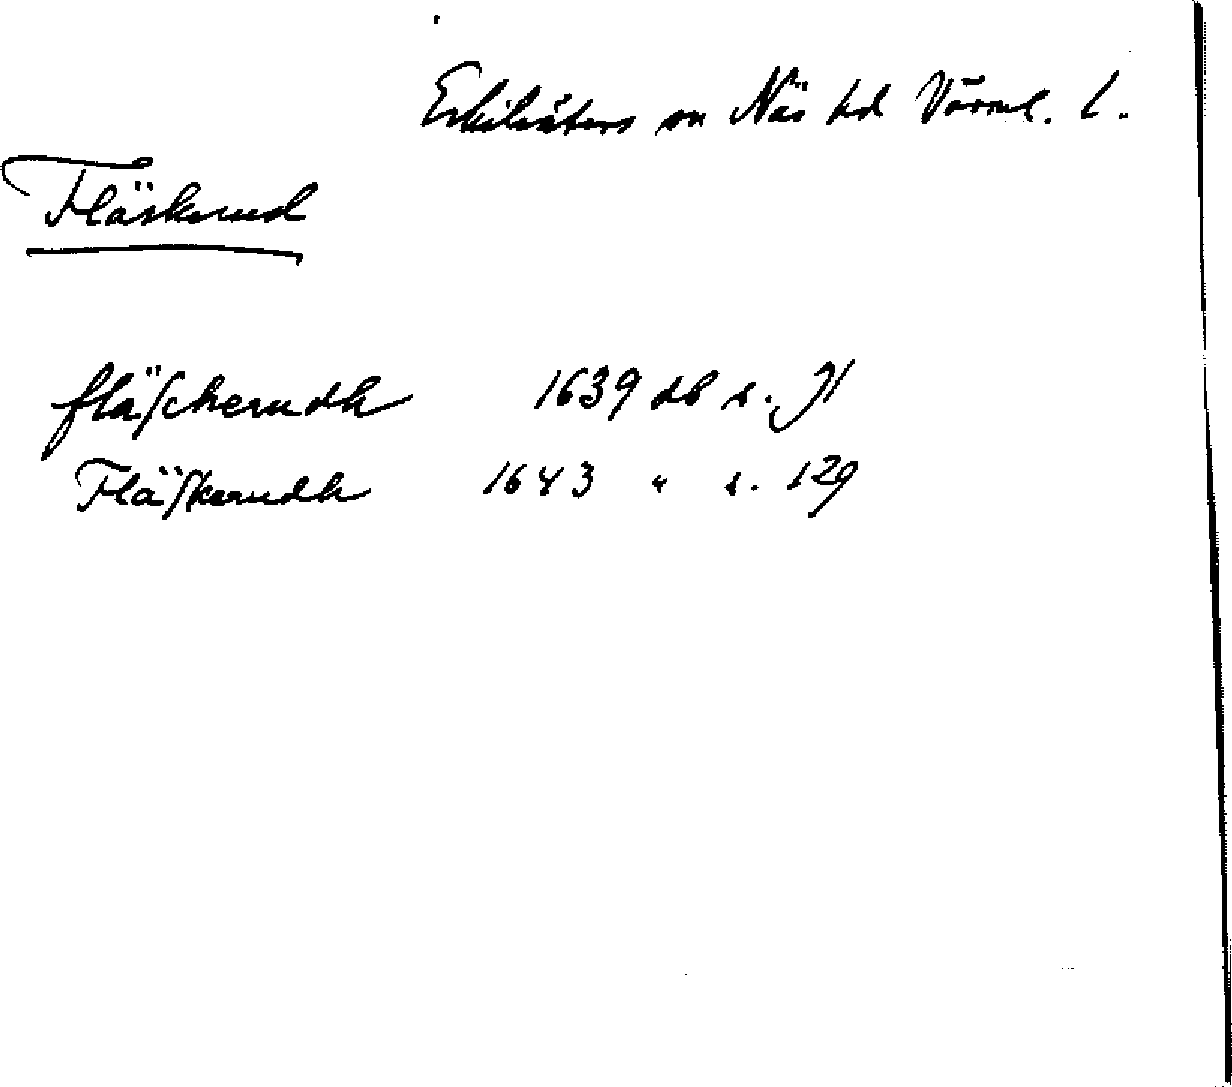 Eskilsäters sn Näs hd Värml. l.
Fläskerud
fläſcherudh 1639 db s. 71
Fläſkerudh 1643 " s. 129